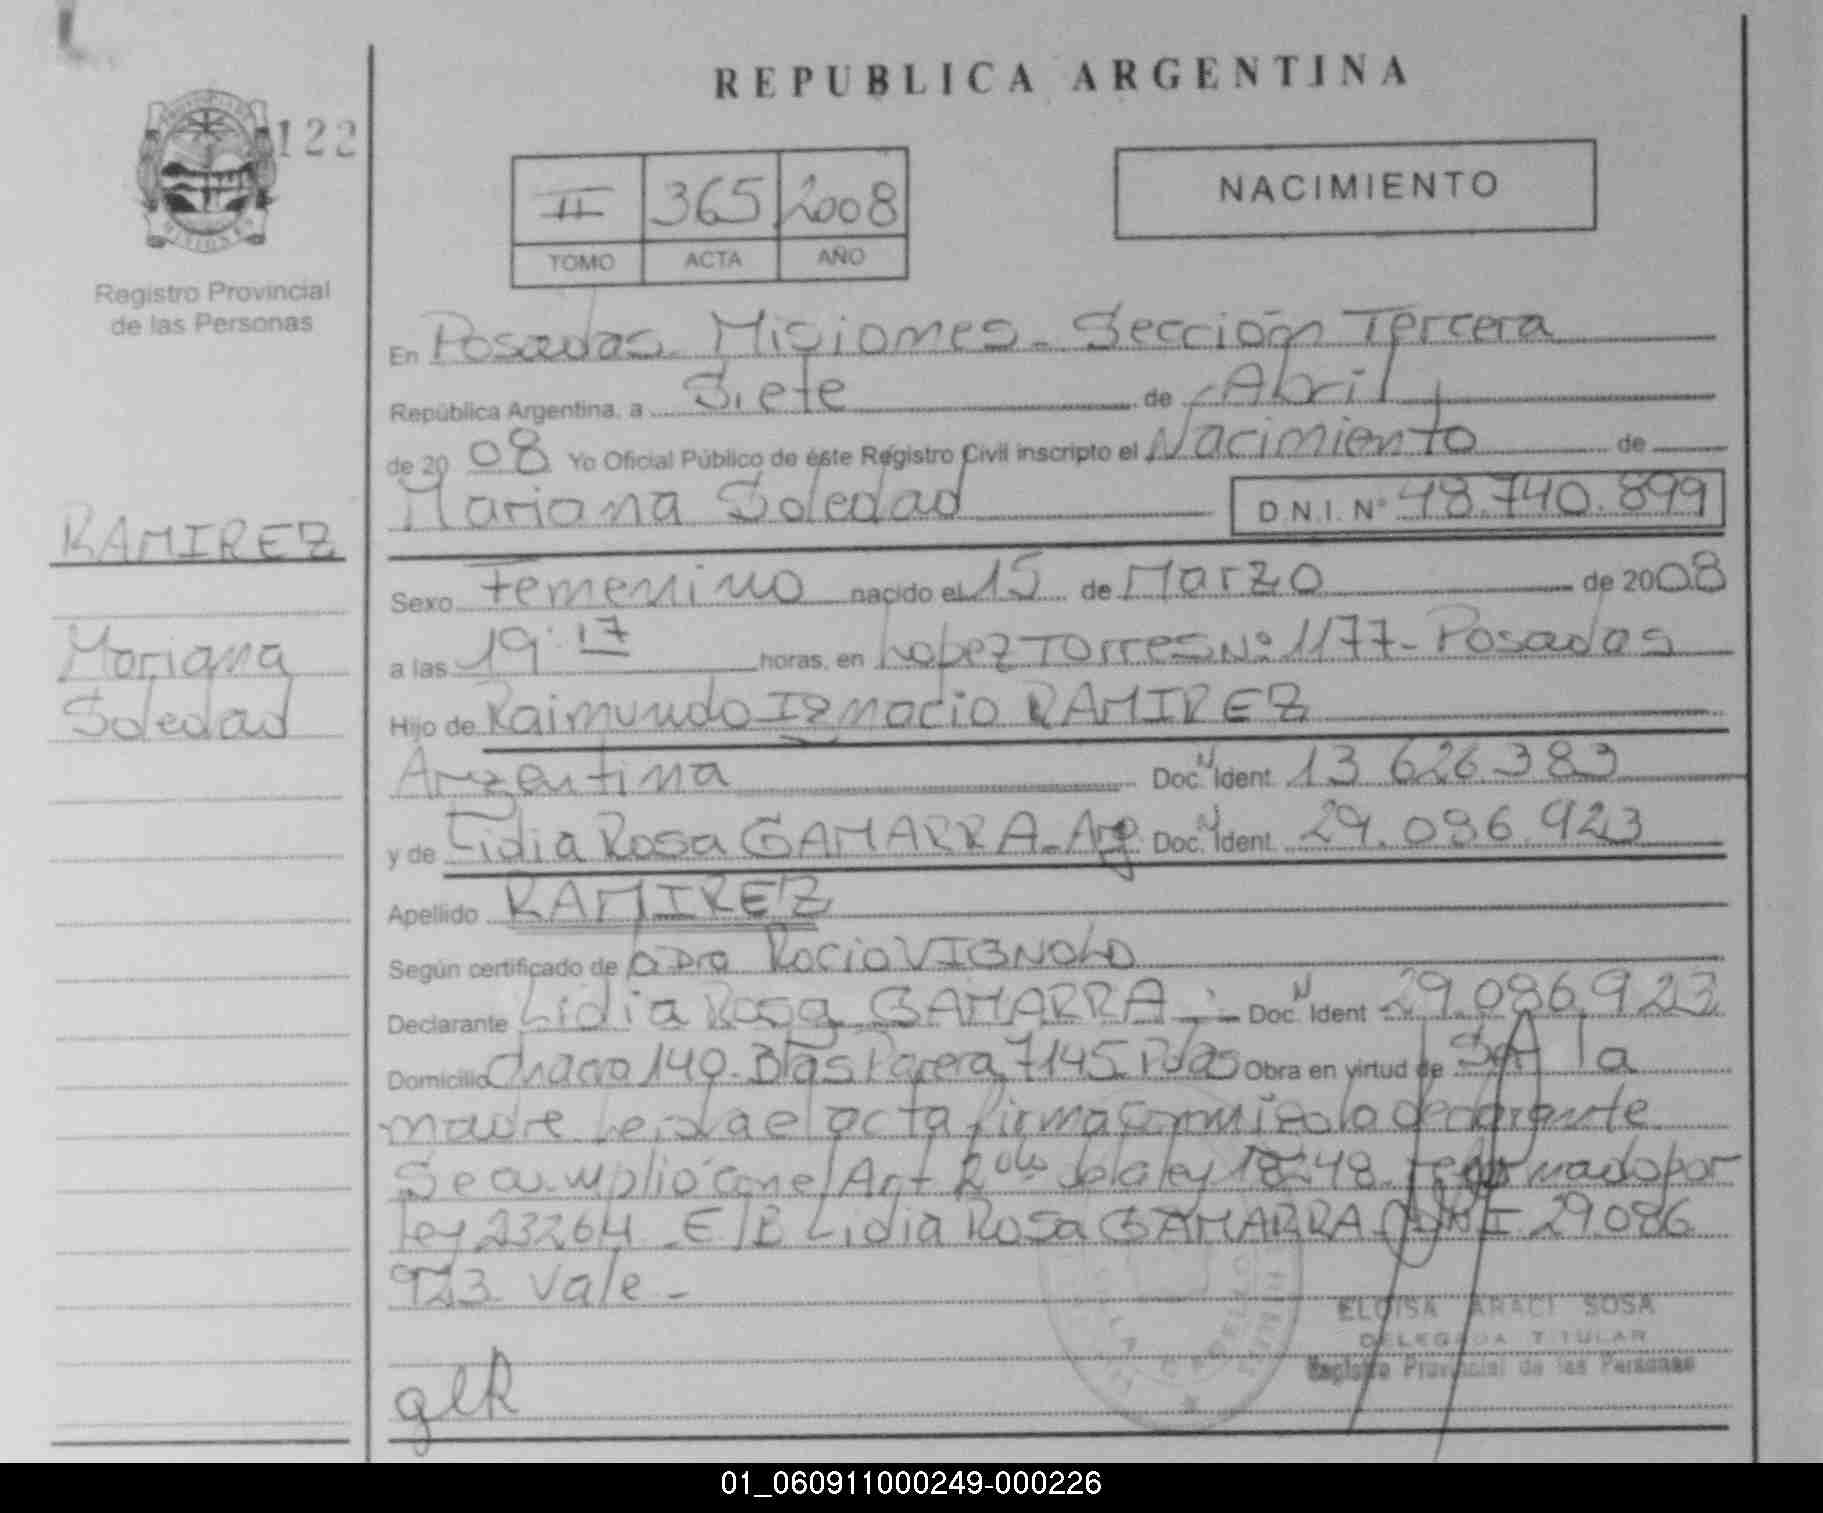 REPUBLICA ARGENTINA
122
PROVINCIA DE
MISIONES
Registro Provincial
de las Personas
II 365 2008
TOMO ACTA AÑO
NACIMIENTO
En Posadas - Misiones - Sección Tercera
República Argentina, a Siete de Abril
de 20 08 Yo Oficial Público de éste Registro Civil inscripto el Nacimiento de
Mariana Soledad D.N.I. Nº 48.740.899
RAMIREZ
Mariana
Soledad
Sexo Femenino nacido el 15 de Marzo de 2008
a las 19:17 horas, en Lopez Torres Nº 1177 - Posadas
Hijo de Raimundo Ignacio RAMIREZ
Argentina Doc. N Ident. 13.626.383
y de Lidia Rosa GAMARRA - Arg. Doc. N Ident. 29.086.923
Apellido RAMIREZ
Según certificado de la Dra Rocio VIGNOLO
Declarante Lidia Rosa GAMARRA - Doc. N Ident 29.086923
Domicilio Chacra 140 - Blas Parera 7145 - Pdas Obra en virtud de Ser la
madre Leida el acta firma conmigo la declarante
Se cumplió con el Art 2 de la ley 18248 reformado por
ley 23264 - E/B Lidia Rosa GAMARRA DNI 29.086
923 Vale -
ELOISA ARACI SOSA
DELEGADA TITULAR
Registro Provincial de las Personas
01_060911000249-000226